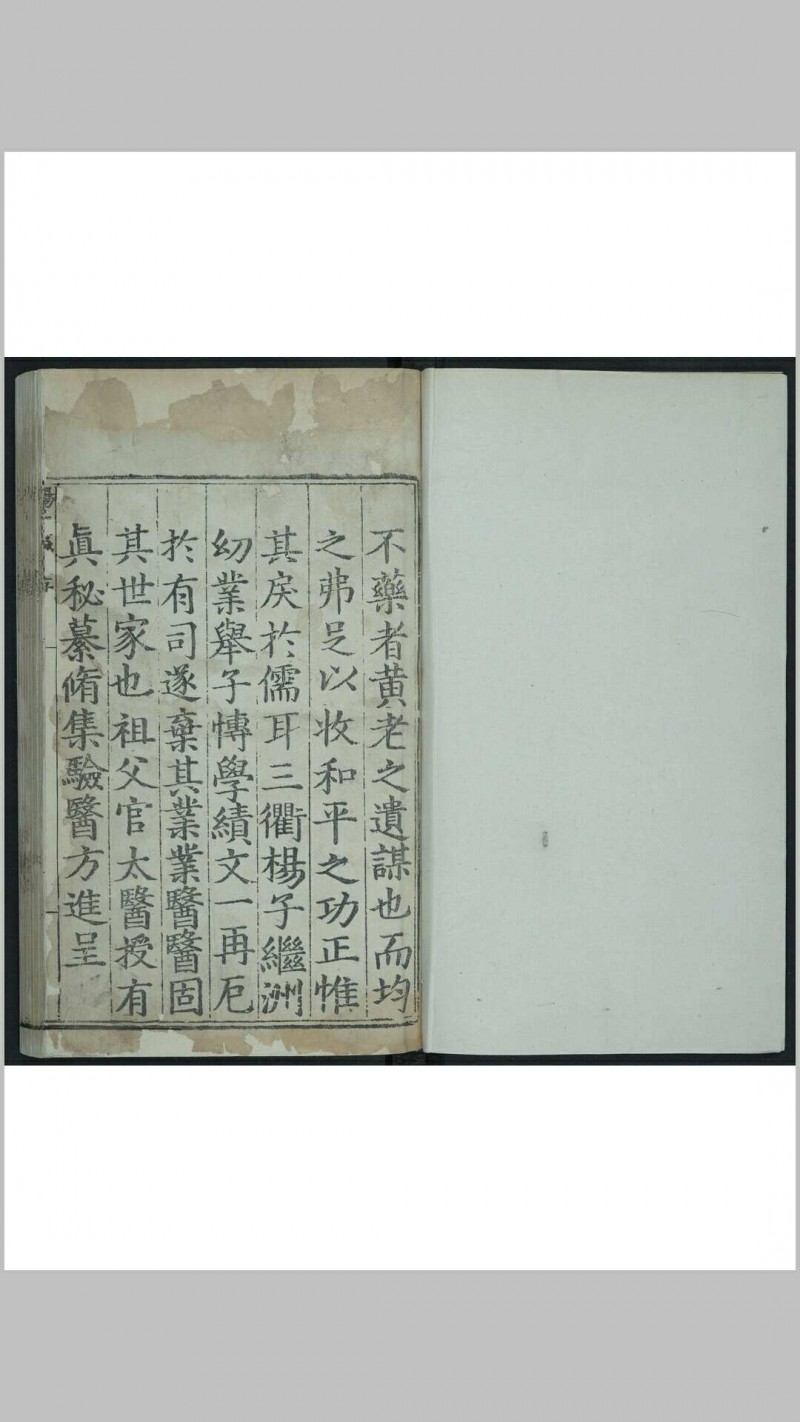 不藥者黄老之遺謀也而均
之弗足以收和平之功正惟
其戾於儒耳三衢楊子繼洲
幼業舉子慱學績文一再厄
扵有司遂棄其業業醫醫固
其世家也祖父官太醫授有
眞秘纂脩集驗醫方進呈